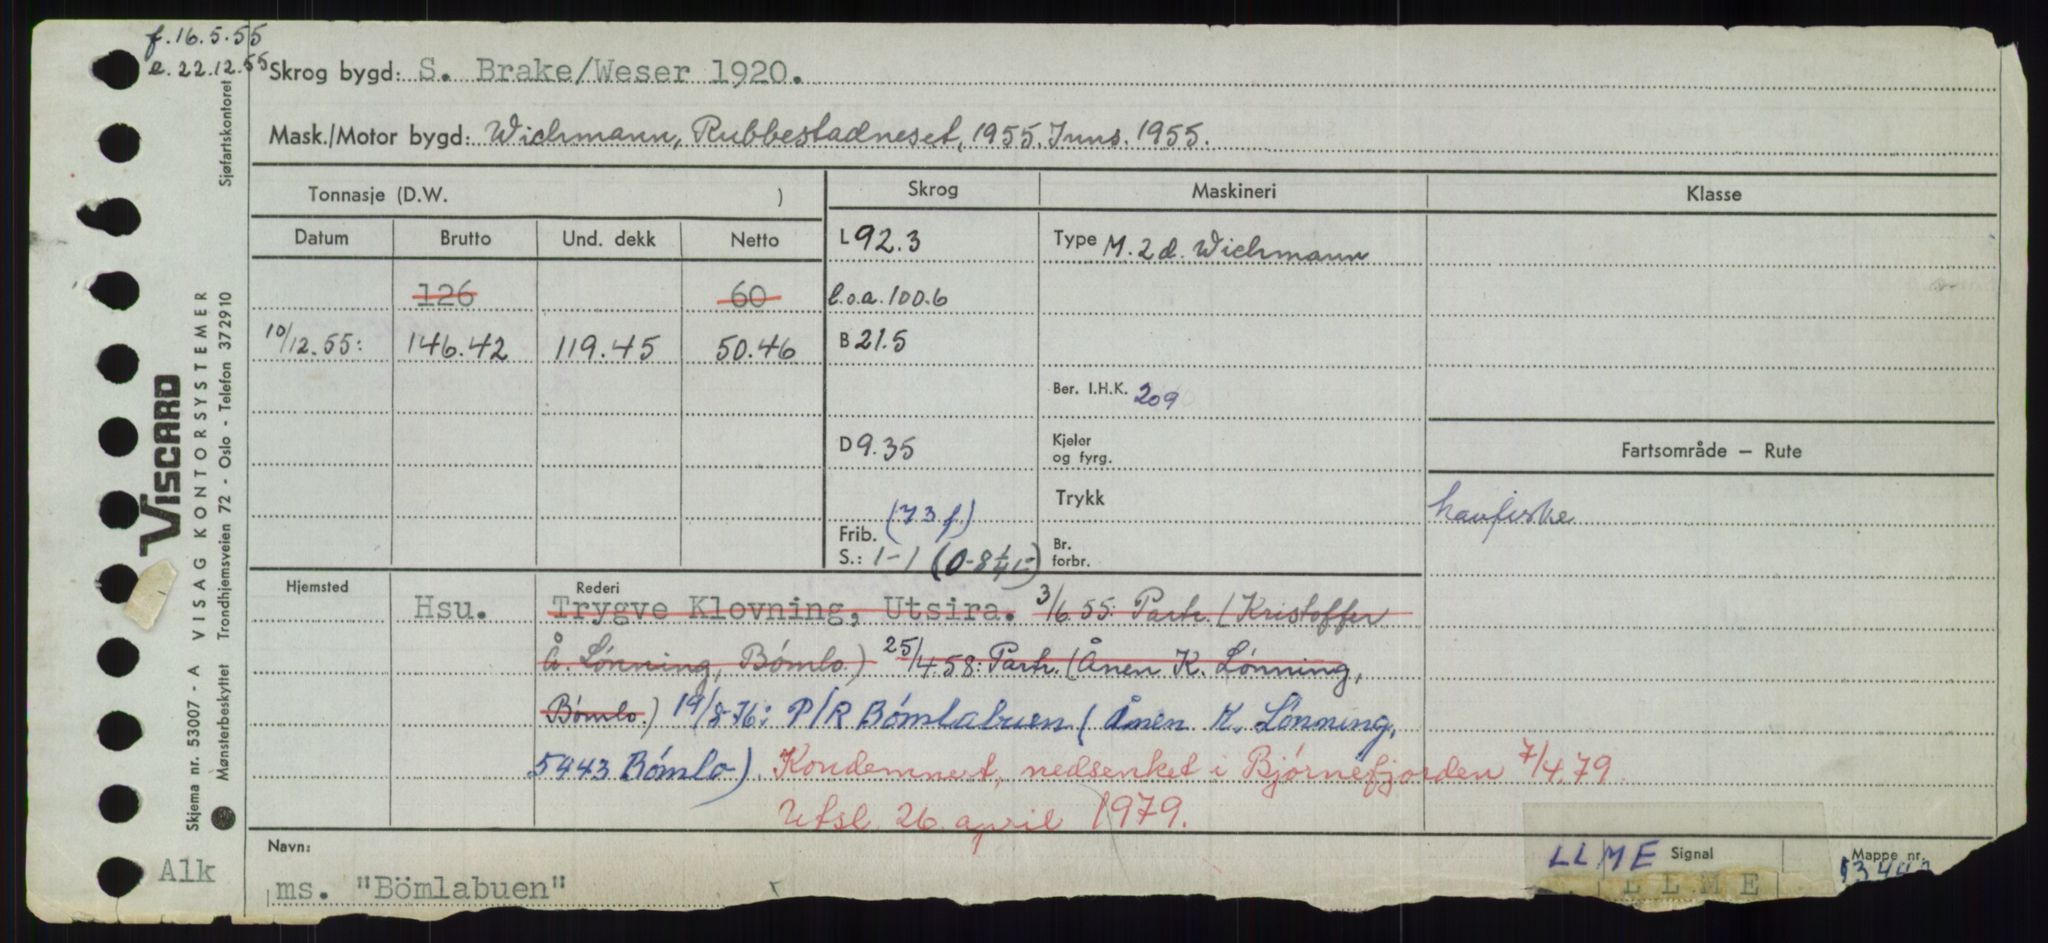 f. 16.5.55
e. 22.12.55
Skrog bygd: S. Brake/Weser 1920.
Mask./Motor bygd: Wichmann, Rubbestadneset, 1955. Inns. 1955.
Tonnasje (D.W. )
Skrog
Maskineri
Klasse
Datum Brutto Und. dekk Netto
L 92.3
Type M. 2 d. Wichmann
126 60
l.o.a. 100.6
10/12.55: 146.42 119.45 50.46
B 21.5
Ber. I.H.K. 209
D 9.35
Kjeler
og fyrg.
Fartsområde — Rute
Trykk
havfiske
Frib. (73 f.)
S.: 1-1
Br.
forbr.
Hjemsted
Rederi
Hsu. Trygve Klovning, Utsira. 3/6.55: Partr. (Kristoffer
Å. Lønning, Bømlo.) 25/4.58: Partr. (Ånen K. Lønning,
Bømlo.) 19/8-76: P/R Bømlabuen (Ånen K. Lønning,
5443 Bømlo). Kondemnert, nedsenket i Bjørnefjorden 7/4.79.
Utsl. 26. april 1979.
Navn:
ms. "Bömlabuen"
LLME Signal
LLME
Mappe nr.
Alk
VISCARD
Skjema nr. 53007 - A VISAG KONTORSYSTEMER
Mønsterbeskyttet Trondhjemsveien 72 - Oslo - Telefon 372910
Sjøfartskontoret